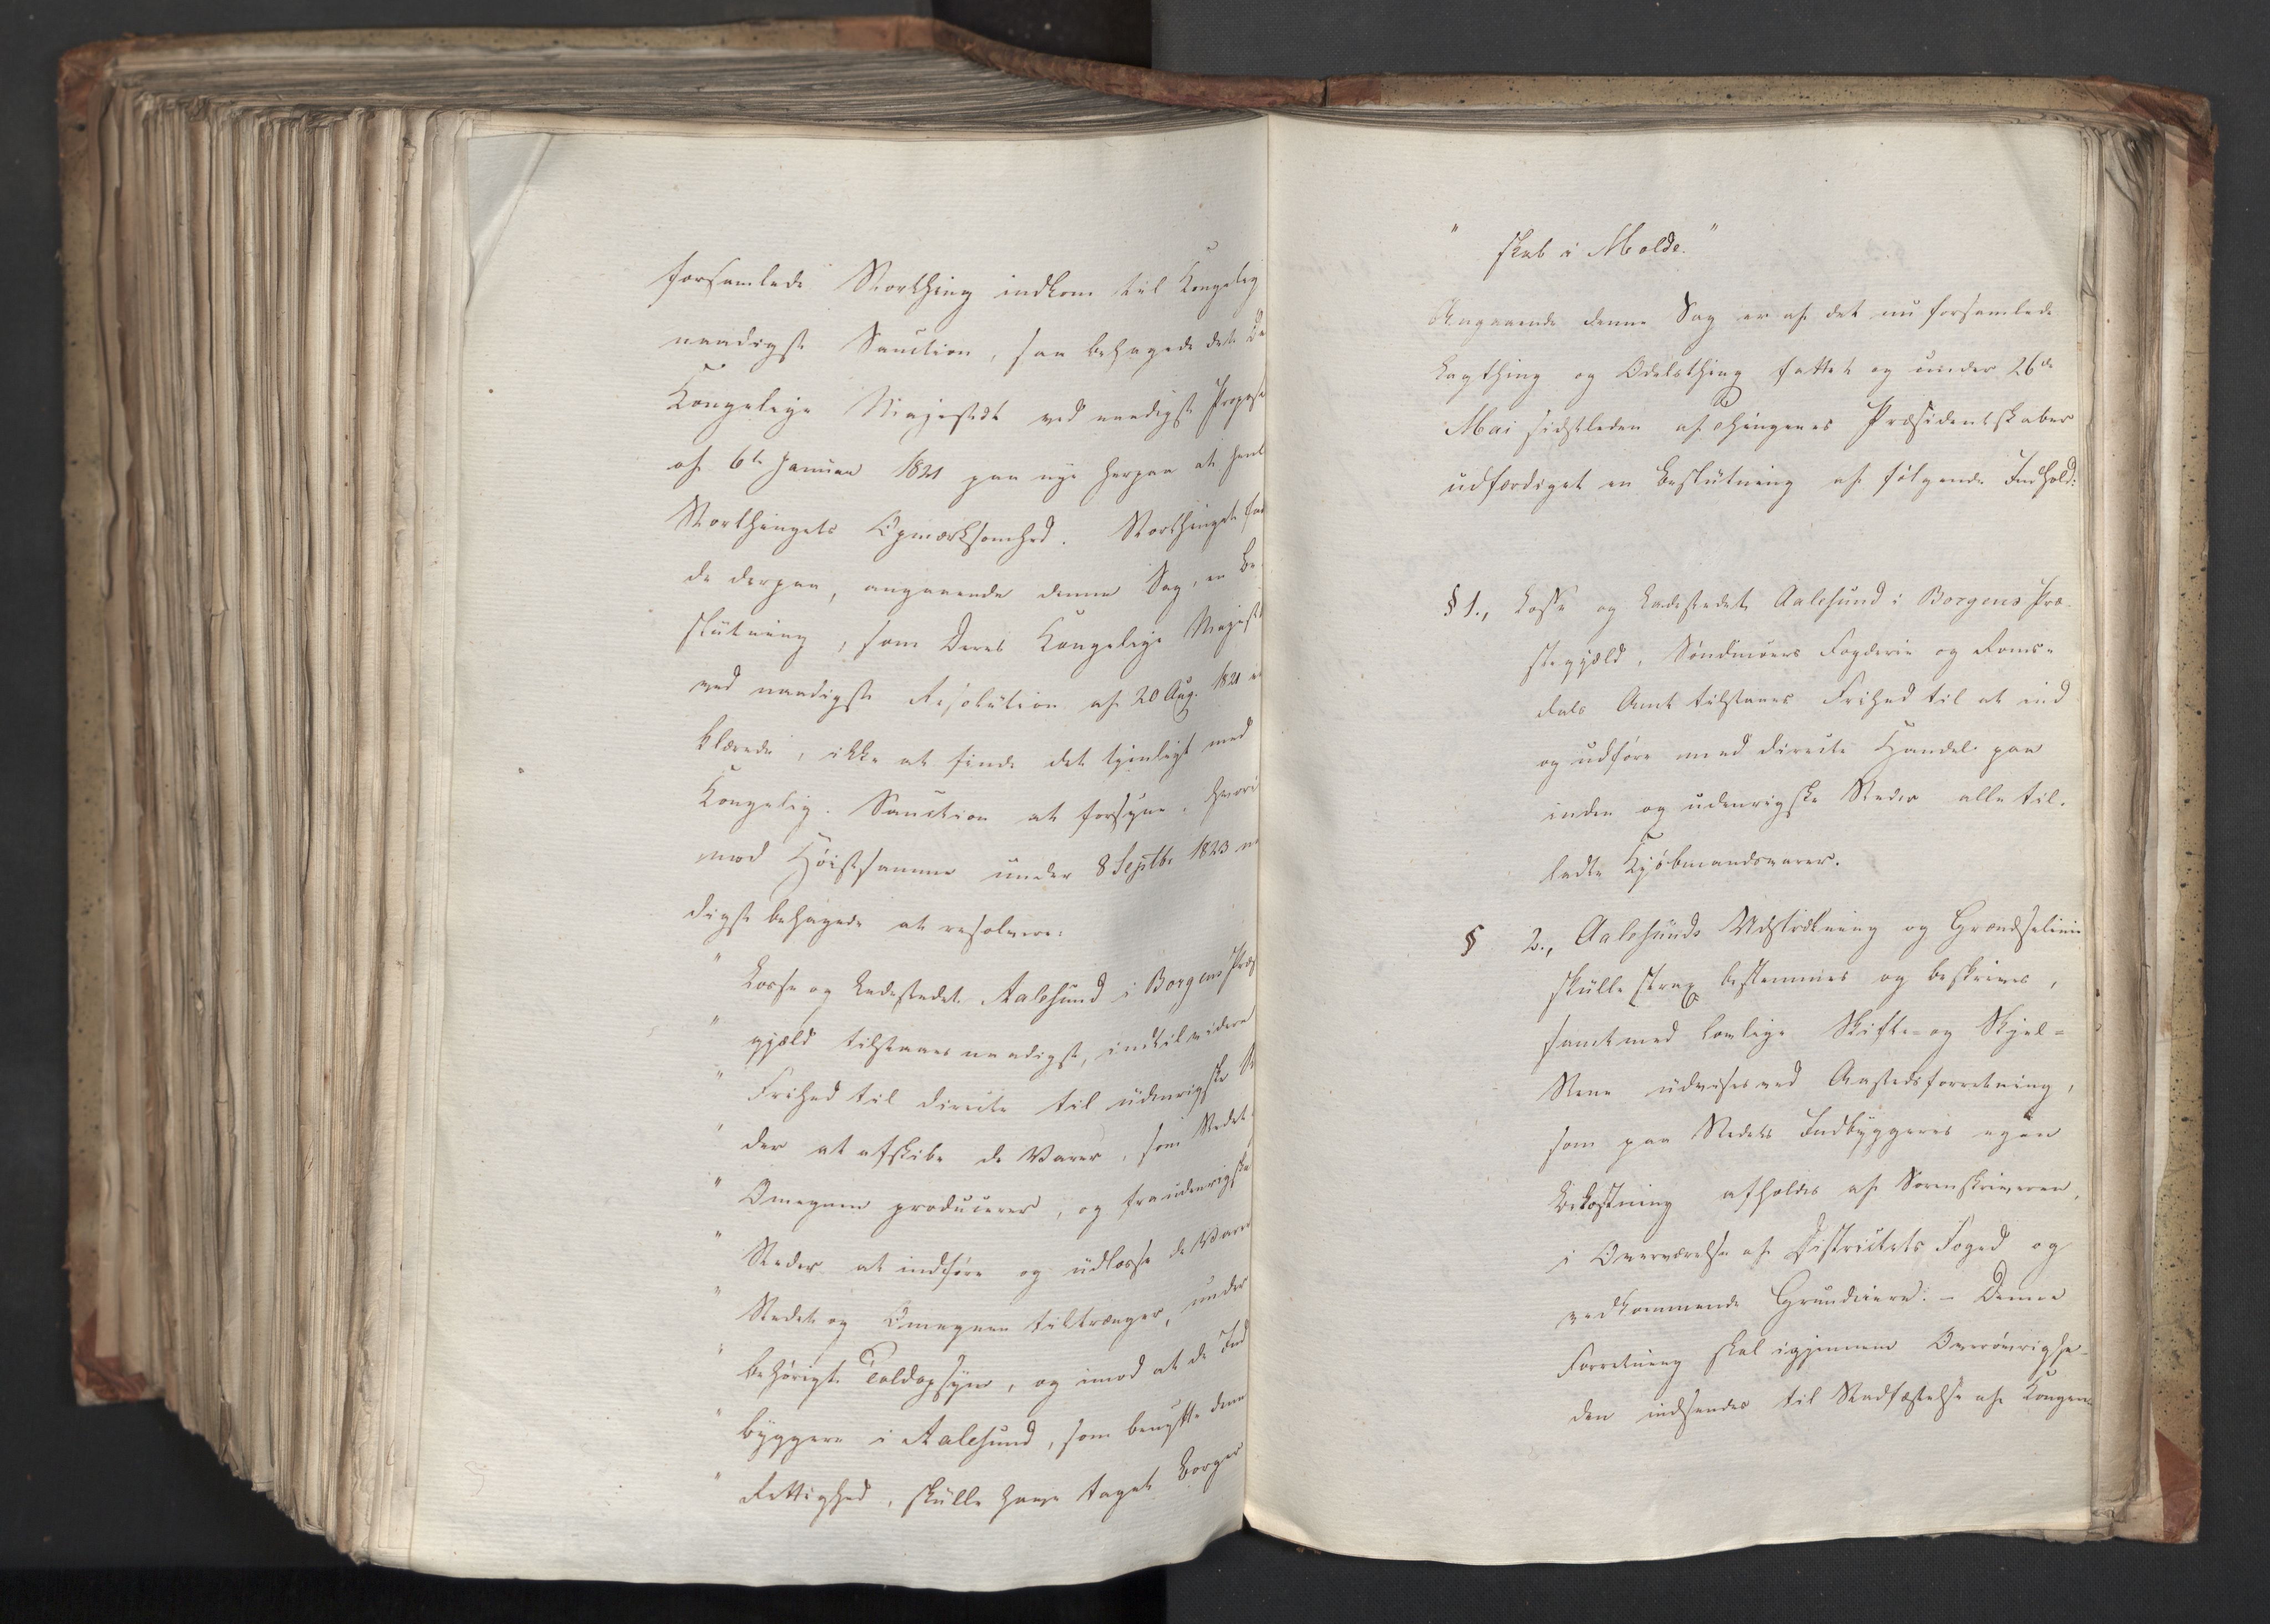 forsamlede Storthing indkom til Kongelig
naadigst Sanction, saa behagede det De
Kongelige Majestæt ved naadigst Propos
af 6te Januar 1821 paa nye herpaa at henl
Storthingets Opmærksomhed. Storthinget fat
de derpaa, angaaende denne Sag, en Be-
slutning, som Deres Kongelige Majest
ved naadigste Resolution af 20 Aug. 1821 er
klærede, ikke at finde det tjenligt med
Kongelig Sanction at forsyne. Hvori
mod Høistsamme under 8 Septbr 1823 na
digst behagede at resolvere:
" Losse og Ladestedet Aalesund i Borgens Præs
" gjæld tilstaaes naadigst, indtil videre
" Frihed til directe til udenrigske St
" der at afskibe de Varer, som Stedet
" Omegnen producerer, og fra udenrigske
" Steder at indføre og udlosse de Varer
" Stedet og Omegnen tiltrænger, under
" behørigt Toldopsyn, og imod at de Ind
" byggere i Aalesund, som benytte denne
" Rettighed, skulle have taget Borger
" skab i Molde."
Angaaende denne Sag er af det nu forsamlede
Lagthing og Odelsthing fattet og under 26de
Mai sidstleden af Thingenes Præsidentskaber
udfærdiget en Beslutning af følgende Indhold:
§ 1., Losse og Ladestedet Aalesund i Borgens Præ-
stegjæld, Søndmøers Fogderie og Roms-
dals Amt tilstaaes Frihed til at ind
og udføre med directe Handel paa
inden og udenrigske Steder alle til-
ladte Kjøbmandsvarer.
§ 2., Aalesunds Udstrækning og Grændselinie
skulle strax bestemmes og beskrives,
samt med lovlige Skifte- og Skjel-
Stene udvises ved Aastedsforretning,
som paa Stedets Indbyggeres egen
Bekostning afholdes af Sorenskriveren,
i Overværelse af Districtets Foged og
vedkommende Grundeiere. - Denne
Forretning skal igjennem Overøvrighe-
den indsendes til Stadfæstelse af Kongen